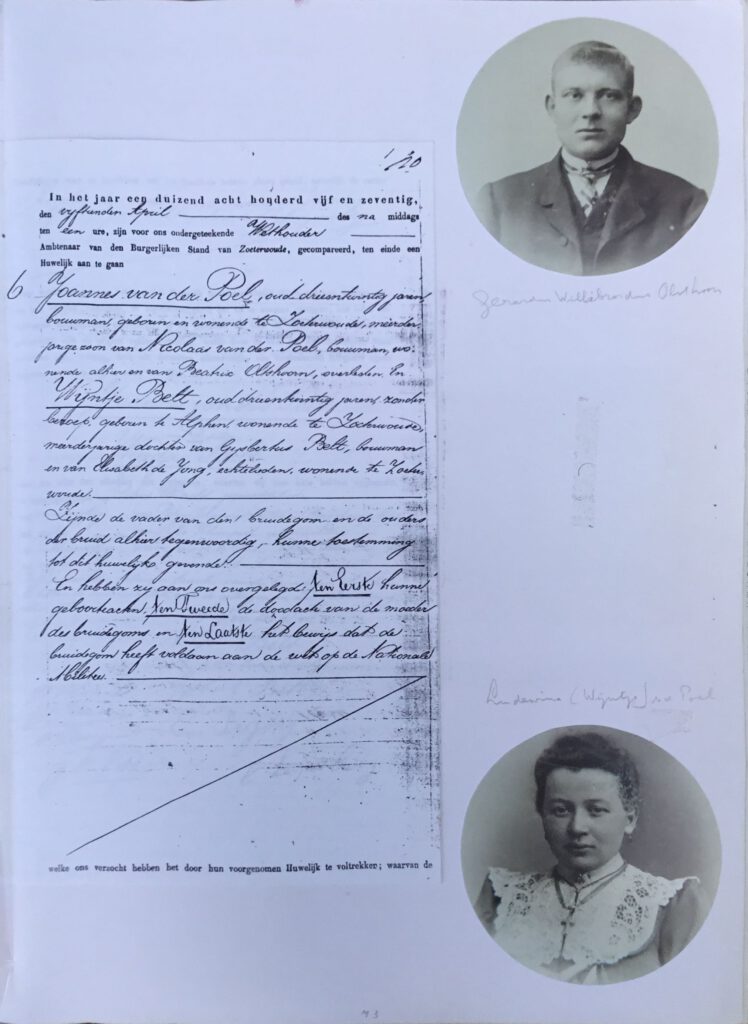 120
In het jaar een duizend acht honderd vijf en zeventig,
den vyftienden April des na middags
ten een ure, zijn voor ons ondergeteekende Wethouder
Ambtenaar van den Burgerlijken Stand van Zoeterwoude, gecompareerd, ten einde een
Huwelijk aan te gaan
6 Joannes van der Poel, oud drieentwintig jaren
bouwman, geboren en wonende te Zoeterwoude, meerder,
jarige zoon van Nicolaas van der Poel, bouwman, wo,
nende alhier en van Beatrix Olsthoorn, overleden. En
Wijntje Belt, oud drieentwintig jaren, zonder
beroep, geboren te Alphen, wonende te Zoeterwoude,
meerderjarige dochter van Gysbertus Belt, bouwman
en van Elisabeth de Jong, echtelieden, wonende te Zoeter,
woude.
Zijnde de vader van den bruidegom en de ouders
der bruid alhier tegenwoordig, hunne toestemming
tot dit huwelijk gevende.
En hebben zij aan ons overgelegd, ten Eerste hunne
geboorteacten, ten Tweede de doodacte van de moeder
des bruidegoms en ten Laatste het bewijs dat de
bruidegom heeft voldaan aan de wet op de Nationale
Militie.
welke ons verzocht hebben het door hun voorgenomen Huwelijk te voltrekken; waarvan de
Willebrordus Olsthoorn
(Wijntje) vd Poel
73